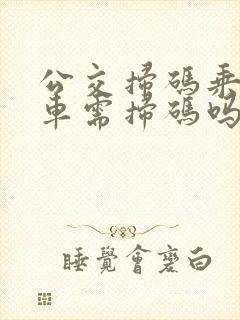 公交掃碼乘
車需掃碼嗎
睡覺會變白